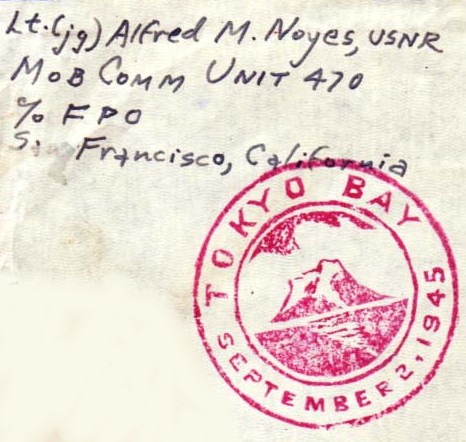 Lt.(jg) Alfred M. Noyes, USNR
MOB COMM UNIT 470
% F P O
S. Francisco, California
TOKYO BAY
SEPTEMBER 2, 1945